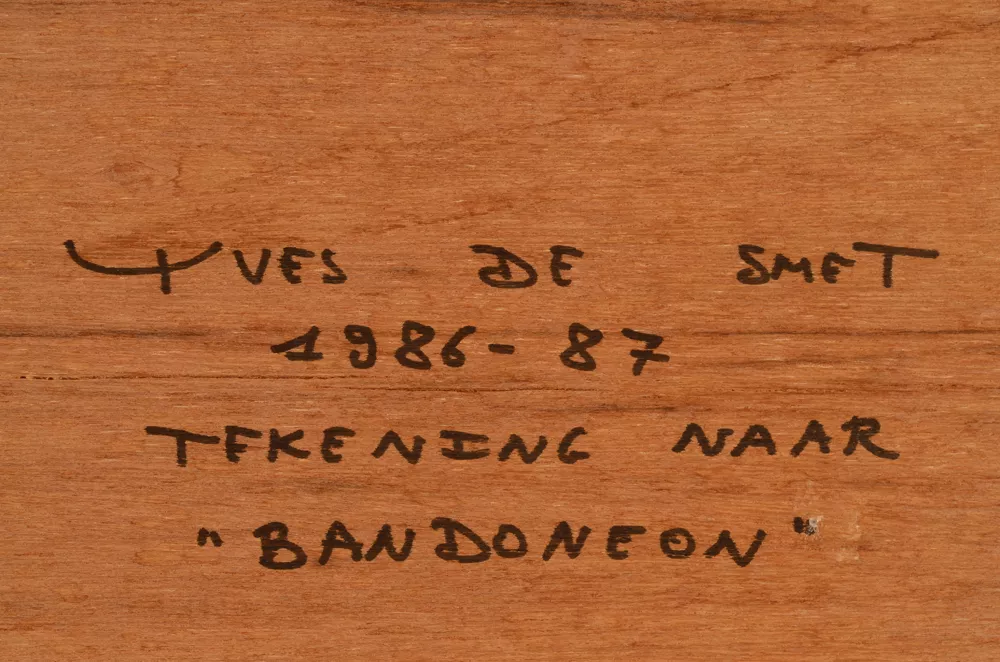 YVES DE SMET
1986-87
TEKENING NAAR
"BANDONEON"